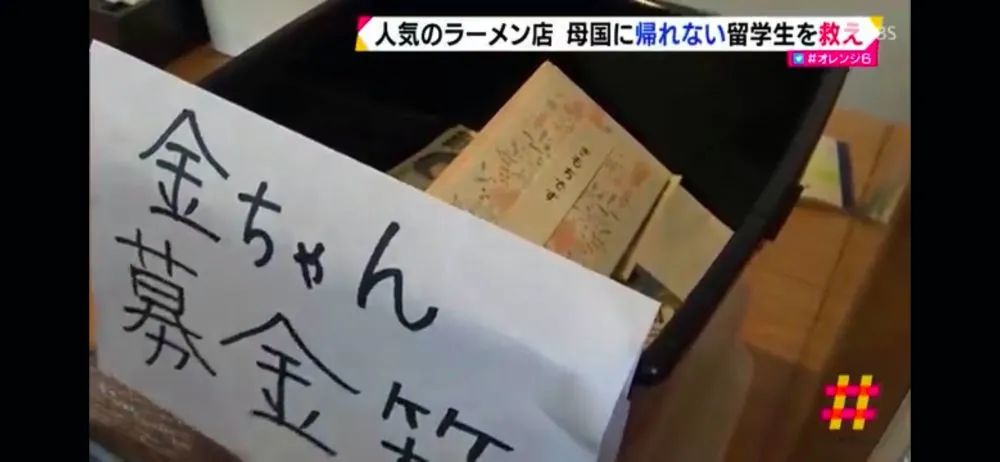 人気のラーメン店 母国に帰れない留学生を救え
#オレンジ6
金ちゃん
募金箱
きもちです